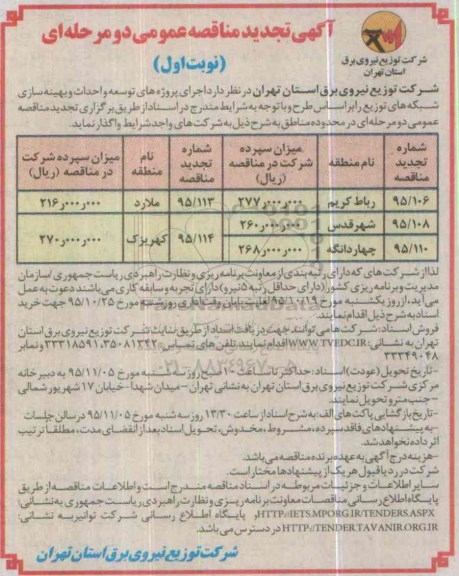 آگهی تجدید مناقصه عمومی دو مرحله ای
(نوبت اول)
شرکت توزیع نیروی برق
استان تهران
شرکت توزیع نیروی برق استان تهران در نظر دارد اجرای پروژه های توسعه و احداث و بهینه سازی
شبکه های توزیع را بر اساس طرح و با توجه به شرایط مندرج در اسناد از طریق برگزاری تجدید مناقصه
عمومی دو مرحله ای در محدوده مناطق به شرح ذیل به شرکت های واجد شرایط واگذار نماید.
شماره تجدید مناقصه | نام منطقه | میزان سپرده شرکت در مناقصه (ریال) | شماره تجدید مناقصه | نام منطقه | میزان سپرده شرکت در مناقصه (ریال)
۹۵/۱۰۶ | رباط کریم | ۲۷۷ر۰۰۰ر۰۰۰ | ۹۵/۱۱۳ | ملارد | ۲۱۶ر۰۰۰ر۰۰۰
۹۵/۱۰۸ | شهرقدس | ۲۶۰ر۰۰۰ر۰۰۰ | ۹۵/۱۱۴ | کهریزک | ۲۷۰ر۰۰۰ر۰۰۰
۹۵/۱۱۰ | چهاردانگه | ۲۶۸ر۰۰۰ر۰۰۰
لذا از شرکت های که دارای رتبه بندی از معاونت برنامه ریزی و نظارت راهبردی ریاست جمهوری /سازمان
مدیریت و برنامه ریزی کشور (دارای حداقل رتبه ۵ نیرو) دارای تجربه و سابقه کاری می باشند دعوت به عمل
می آید، از روز یکشنبه مورخ ۹۵/۱۰/۱۹ لغایت پایان وقت اداری روز شنبه مورخ ۹۵/۱۰/۲۵ جهت خرید
اسناد به شرح ذیل اقدام نمایند.
فروش اسناد: شرکت ها می توانند جهت دریافت اسناد از طریق سایت شرکت توزیع نیروی برق استان
تهران به نشانی: WWW.TVEDC.IR اقدام نمایند. تلفن های تماس: ۳۵۰۸۱۳۴۲، ۳۳۳۱۸۵۹۱ و نمابر
۳۳۳۴۹۰۴۸
-تاریخ تحویل (عودت) اسناد: حداکثر تا ساعت صبح روز سه شنبه مورخ ۹۵/۱۱/۰۵ به دبیرخانه
مرکزی شرکت توزیع نیروی برق استان تهران به نشانی تهران - میدان شهدا - خیابان ۱۷ شهریور شمالی
- جنب مترو تحویل نمایند.
-تاریخ بازگشایی پاکت های الف: به شرح اسناد از ساعت ۱۳/۳۰ روز سه شنبه مورخ ۹۵/۱۱/۰۵ در سالن جلسات
-به پیشنهادهای فاقد سپرده، مشروط، مخدوش، تحویل اسناد بعد از انقضای مدت، مطلقا ترتیب
اثر داده نخواهد شد.
-هزینه درج آگهی به عهده برنده مناقصه می باشد.
شرکت در رد یا قبول هر یک از پیشنهادها مختار است.
سایر اطلاعات و جزئیات مربوطه در اسناد مناقصه مندرج است و اطلاعات مناقصه از طریق
پایگاه اطلاع رسانی مناقصات معاونت برنامه ریزی و نظارت راهبردی ریاست جمهوری به نشانی:
HTTP://IETS.MPORG.IR/TENDERS.ASPX، پایگاه اطلاع رسانی شرکت توانیر به نشانی:
HTTP://TENDER.TAVANIR.ORG.IR در دسترس می باشد.
شرکت توزیع نیروی برق استان تهران